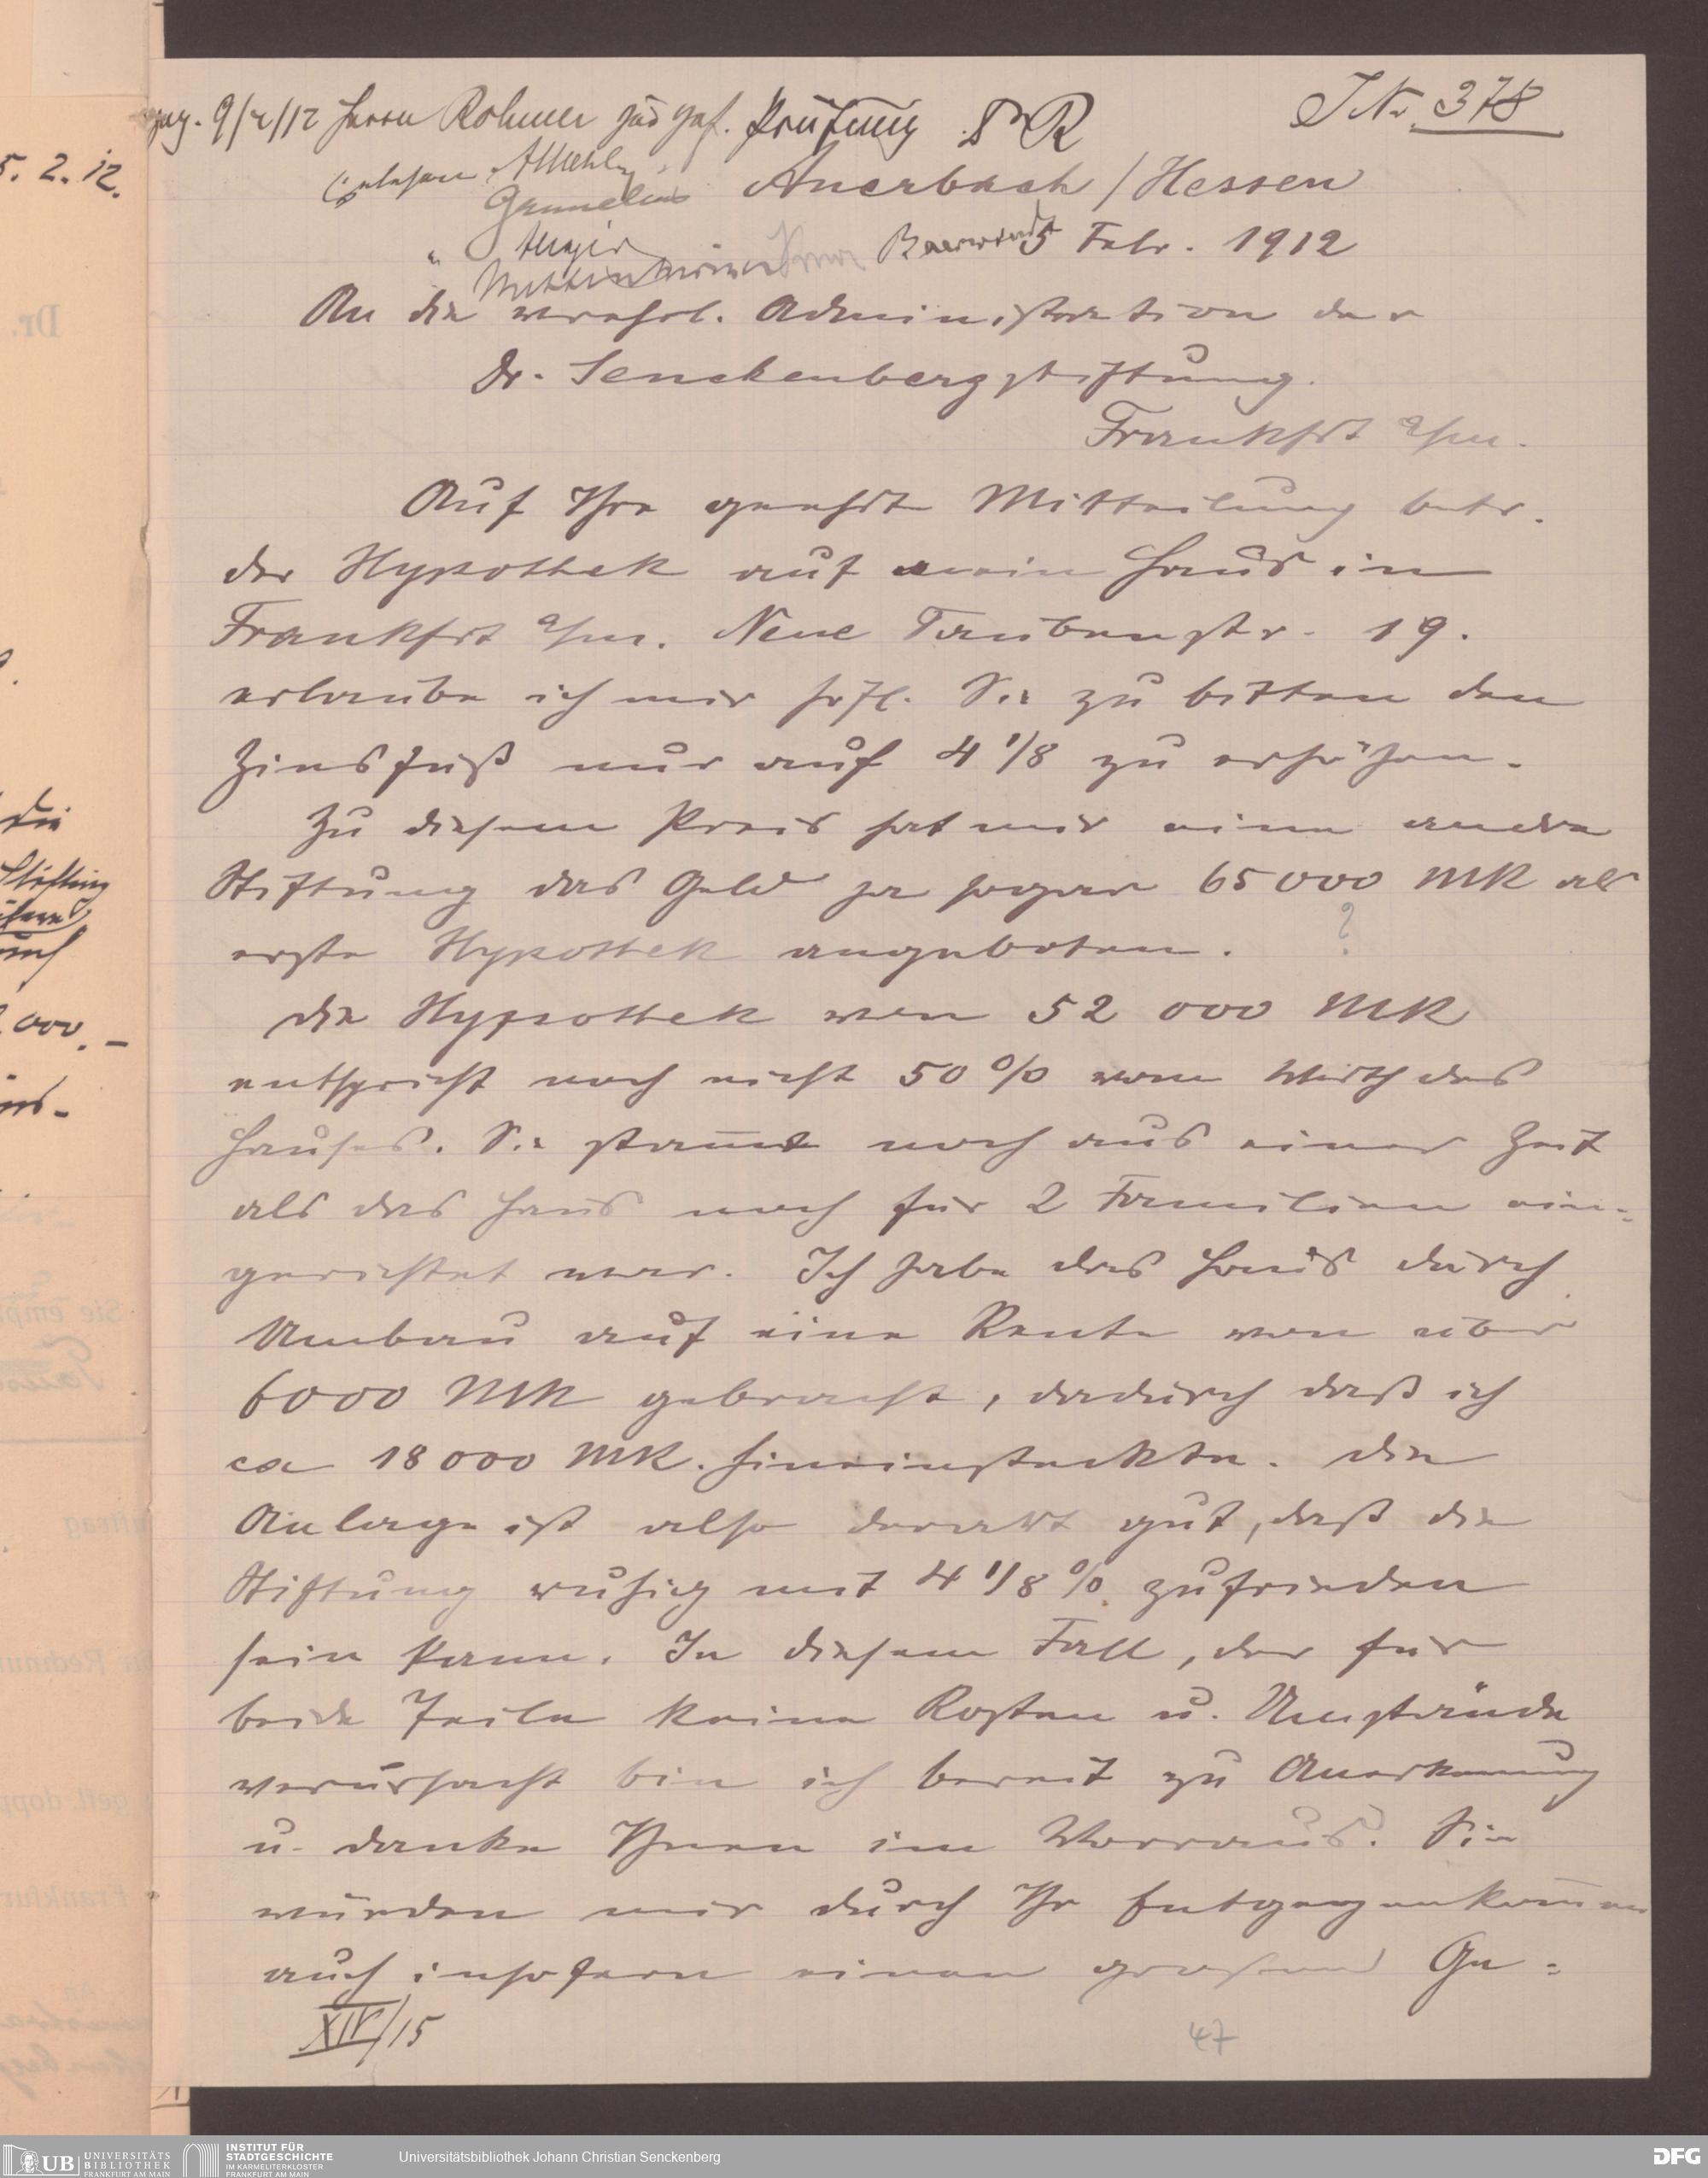 9/2/12 Herrn Rohmer zur gef. Prüfung Dr R
JNr. 378
5. 2. 12.
Gelesen
Auerbach / Hessen
5 Febr. 1912
An die verehrl. Administration der
Dr. Senckenbergstiftung.
Frankfrt a/m.
Auf Ihre geehrte Mitteilung betr.
der Hypothek auf mein Haus in
Frankfrt a/m. Neue Taubenstr. 19.
erlaube ich mir höfl. Sie zu bitten den
Zinsfuß nur auf 4 1/8 zu erhöhen.
Zu diesem Preis hat mir eine andre
Stiftung das Geld ja sogar 65000 Mk als
erste Hypothek angeboten. ?
die Hypothek von 52 000 Mk
entspricht noch nicht 50% vom Werth des
Hauses. Sie stammt noch aus einer Zeit
als das Haus noch für 2 Familien ein=
gerichtet war. Ich habe das Haus durch
Umbau auf eine Rente von über
6000 Mk gebracht, dadurch daß ich
ca 18000 Mk. hineinsteckte. die
Anlage ist also derart gut, daß die
Stiftung ruhig mit 4 1/8 % zufrieden
sein kann. In diesem Fall, der für
beide Teile keine Kosten u. Umstände
verursacht bin ich bereit zu Anerkennung
u. danke Ihnen im Vorraus. Sie
würden mir durch Ihr Entgegenkommen
auch insofern einen grossen Ge=
XIV/15
47
UB UNIVERSITÄTS
BIBLIOTHEK
FRANKFURT AM MAIN
INSTITUT FÜR
STADTGESCHICHTE
IM KARMELITERKLOSTER
FRANKFURT AM MAIN
Universitätsbibliothek Johann Christian Senckenberg
DFG